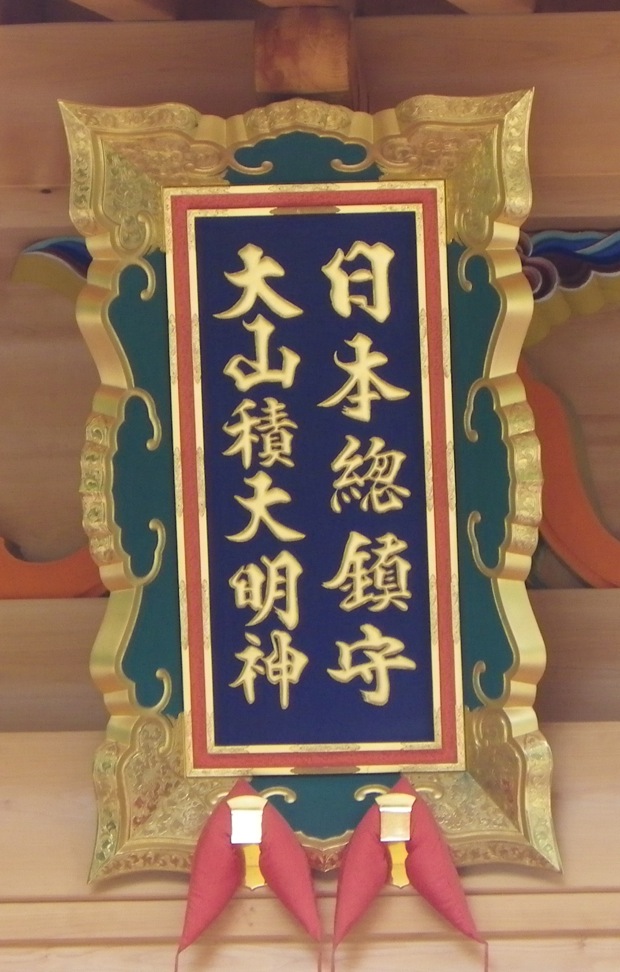 日本総鎮守
大山積大明神